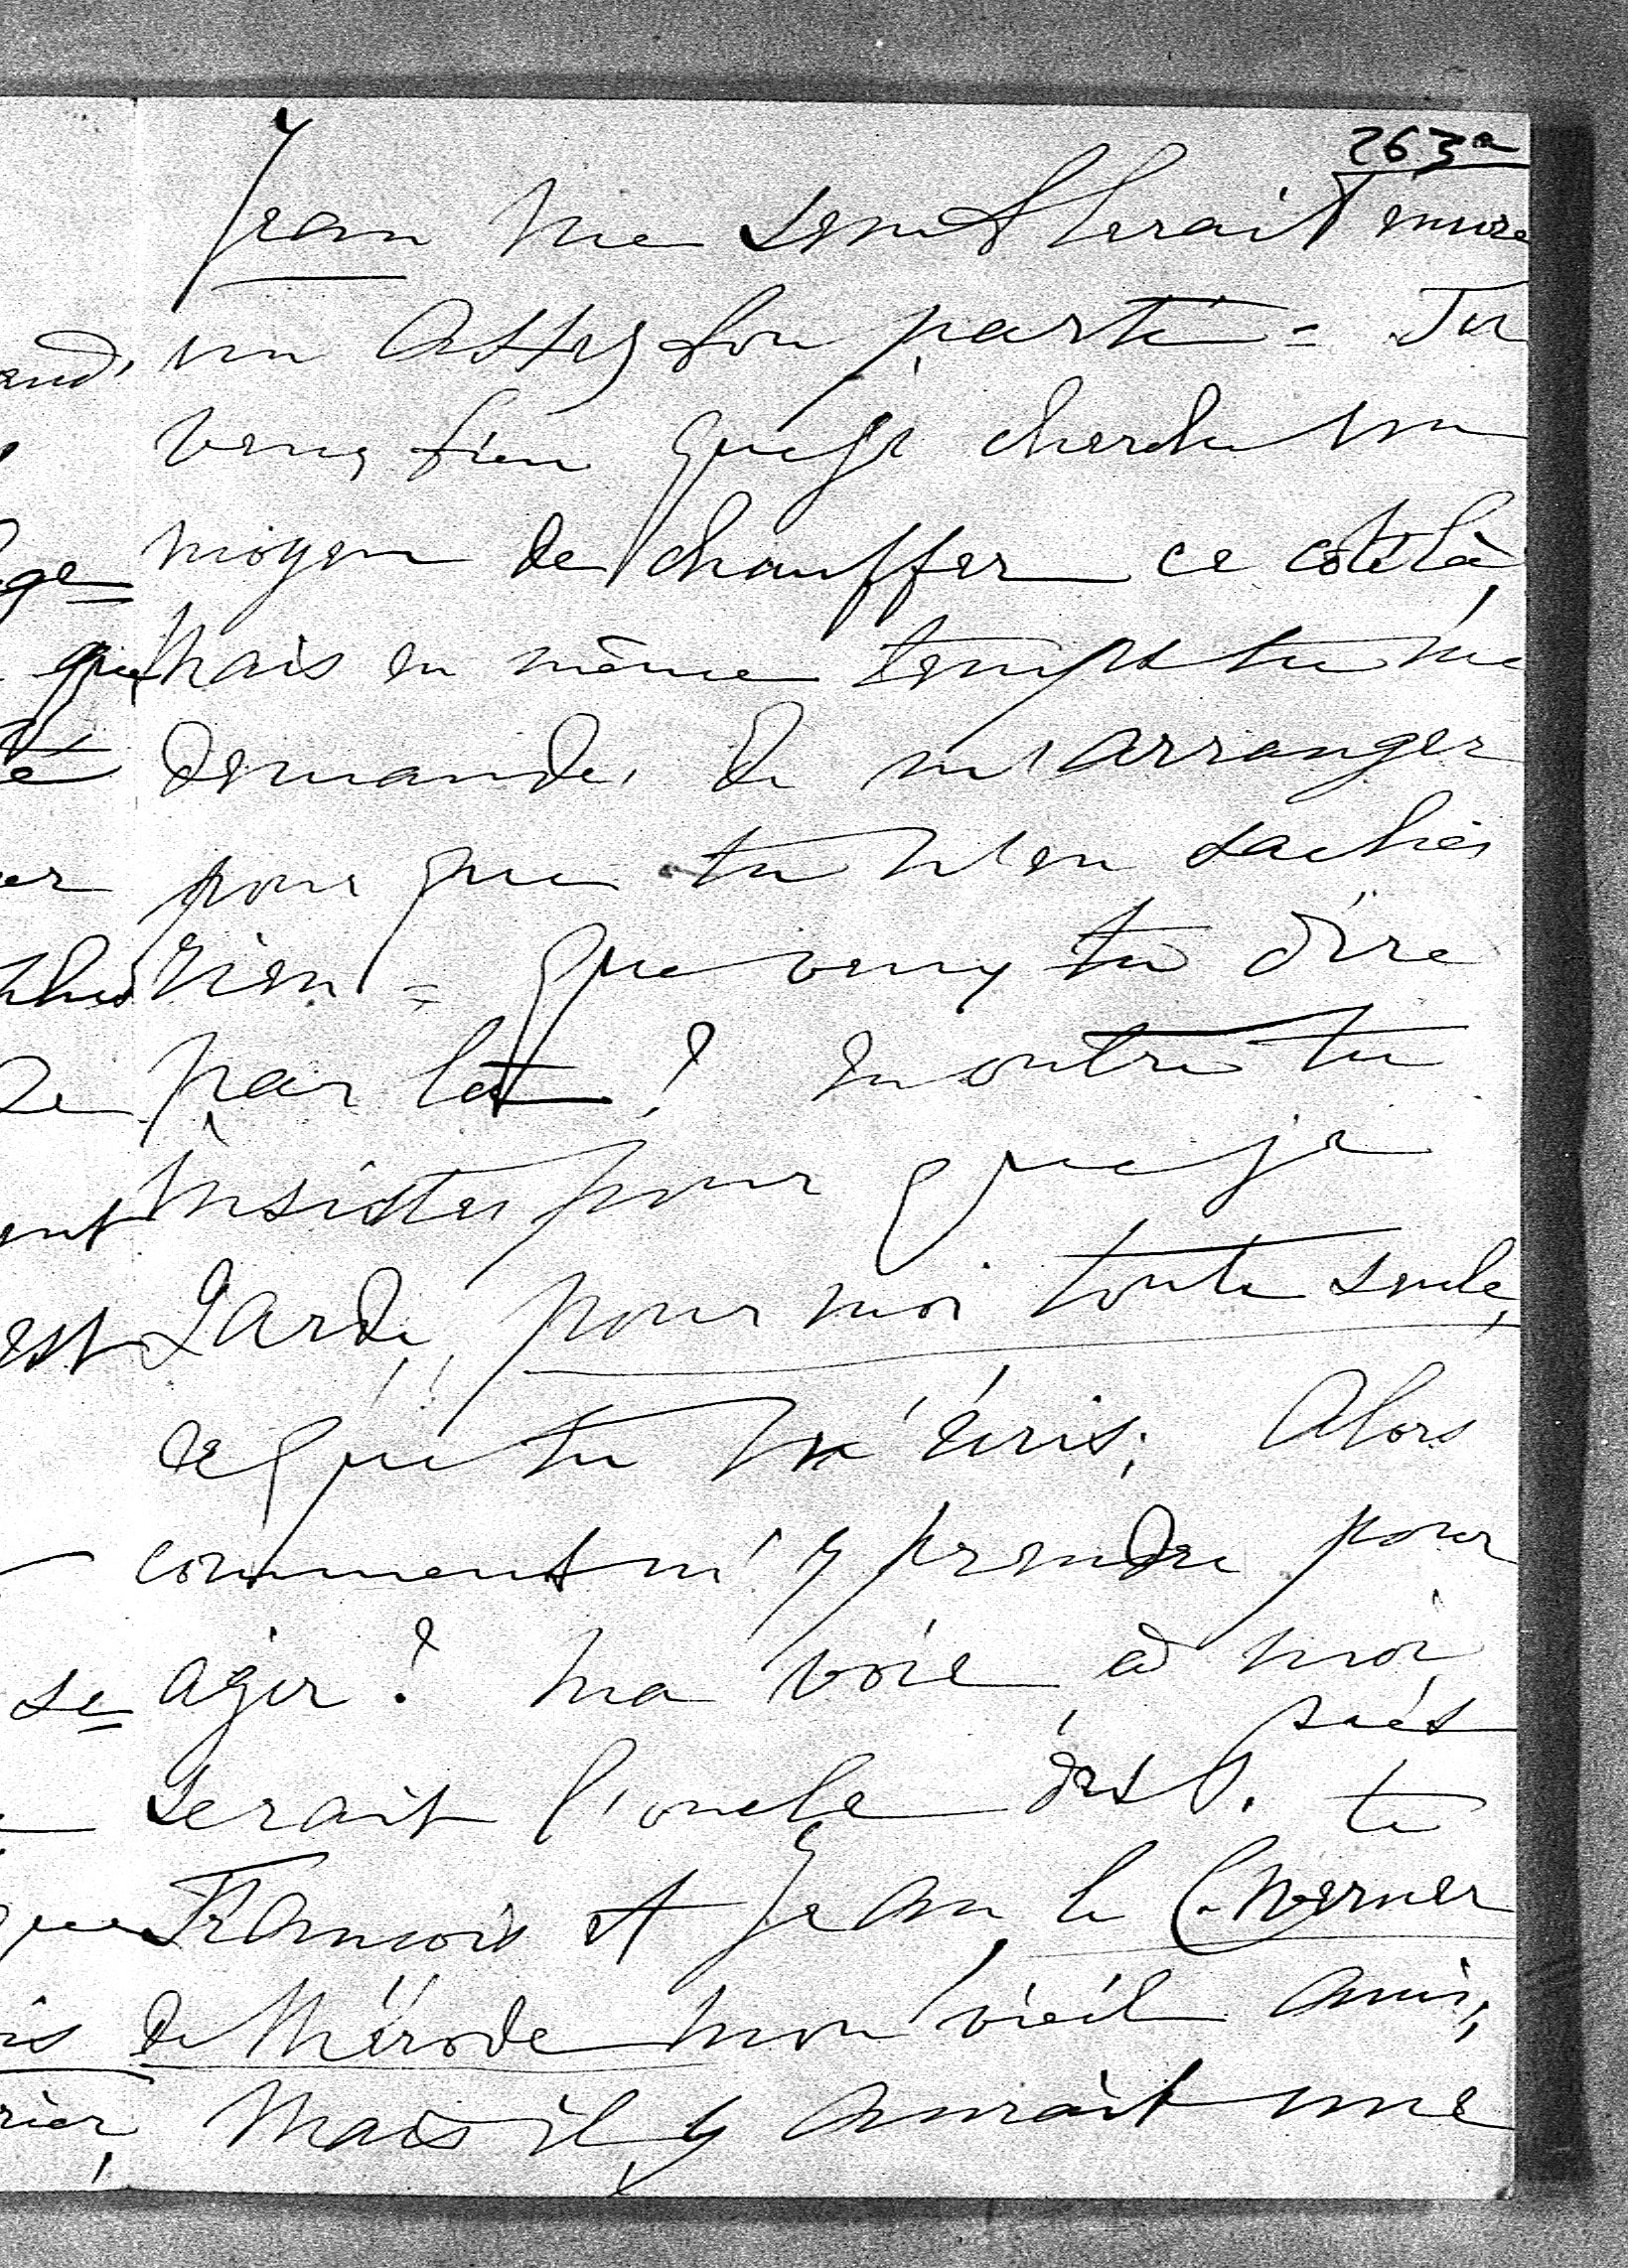 263a
Jean me semblerait encore
un assez bon parti = Tu
veux bien que je cherche un
moyen de chauffer ce côté là,
Mais en même temps tu me
demandes de m'arranger
pour que tu n'en saches
rien = Que veux tu dire
par là ? En outre tu
insistes pour que je
garde, pour moi toute seule,
ce que tu m'écris; Alors
comment m'y prendre pour
agir ? Ma voie à moi,
serait l'oncle des
François et Jean, le C. Werner
de Mérode mon vieil ami,
Mais il y aurait une